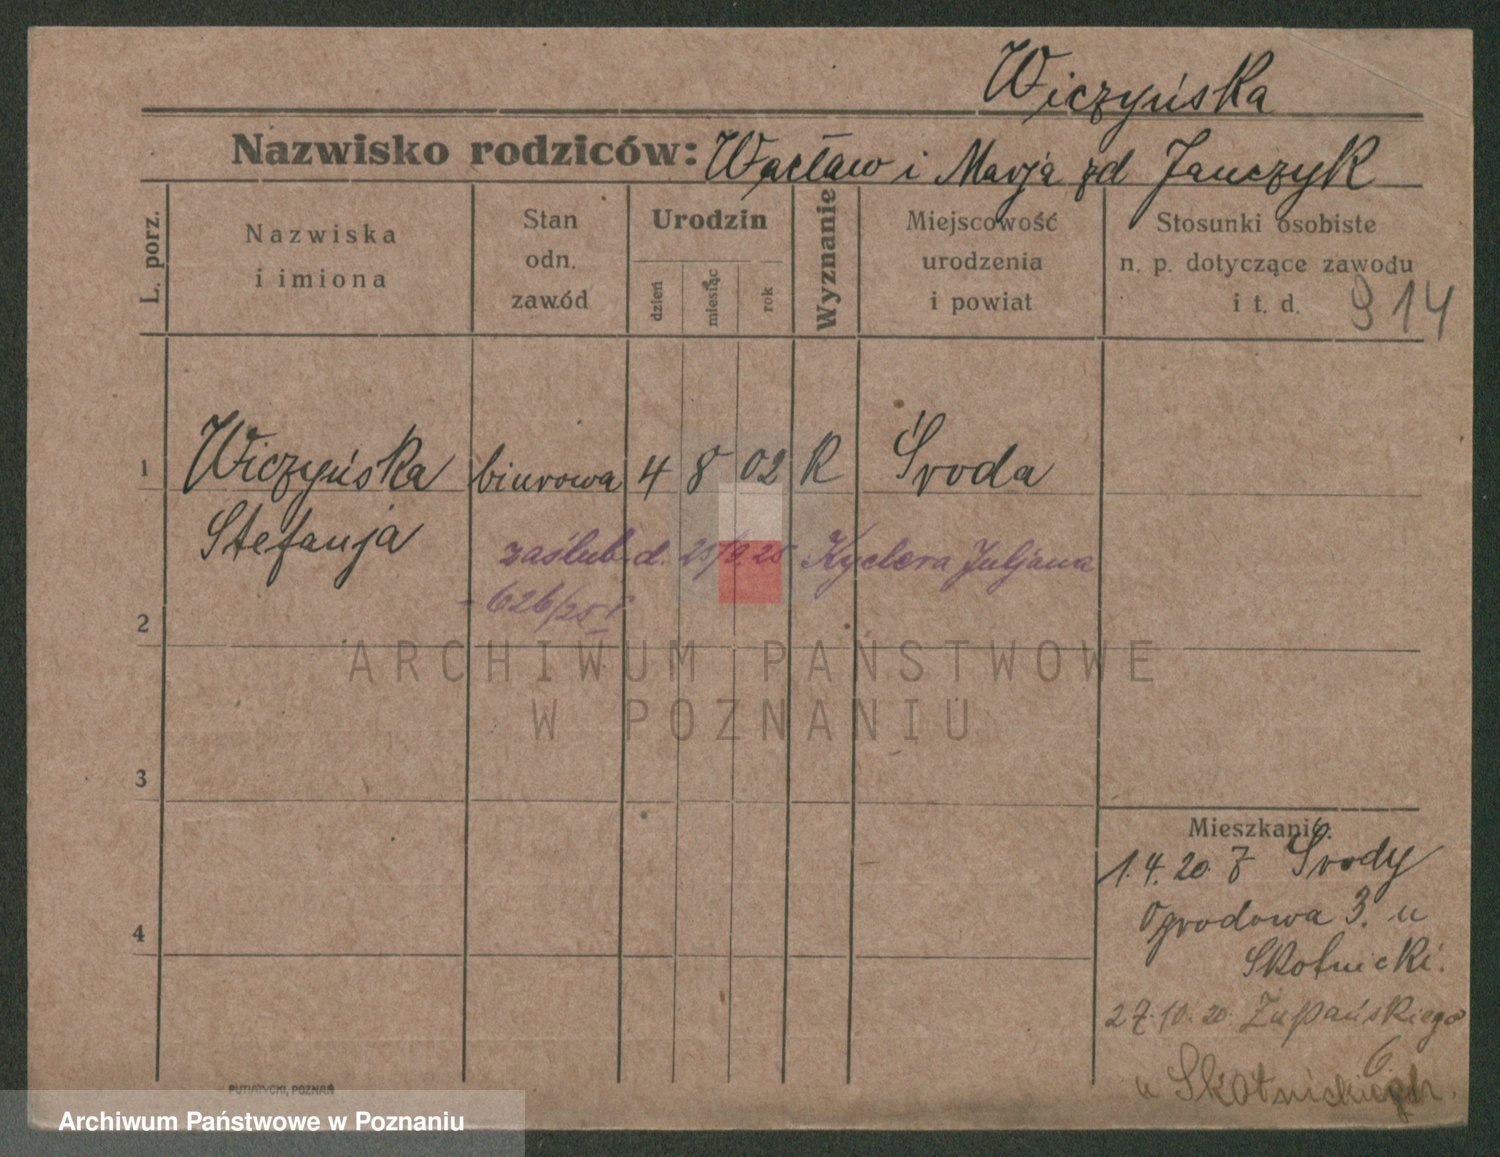 Wiczyńska
Nazwisko rodziców: Wacław i Marja zd Janczyk
L. porz.
Nazwiska
i imiona
Stan
odn.
zawód
Urodzin
dzień
miesiąc
rok
Wyznanie
Miejscowość
urodzenia
i powiat
Stosunki osobiste
n. p. dotyczące zawodu
i t. d.
914
1 Wiczyńska biurowa 4 8 02 R Środa
Stefanja
zaślub. d. 25/9.25 Kyclera Juljana
626/25
2
3
4
Mieszkanie:
1.4.20 z Środy
Ogrodowa 3. u
Skotnicki.
27.10.20. Żupańskiego
6.
u Skotnickich.
PUTIATYCKI, POZNAŃ
ARCHIWUM PAŃSTWOWE
W POZNANIU
Archiwum Państwowe w Poznaniu